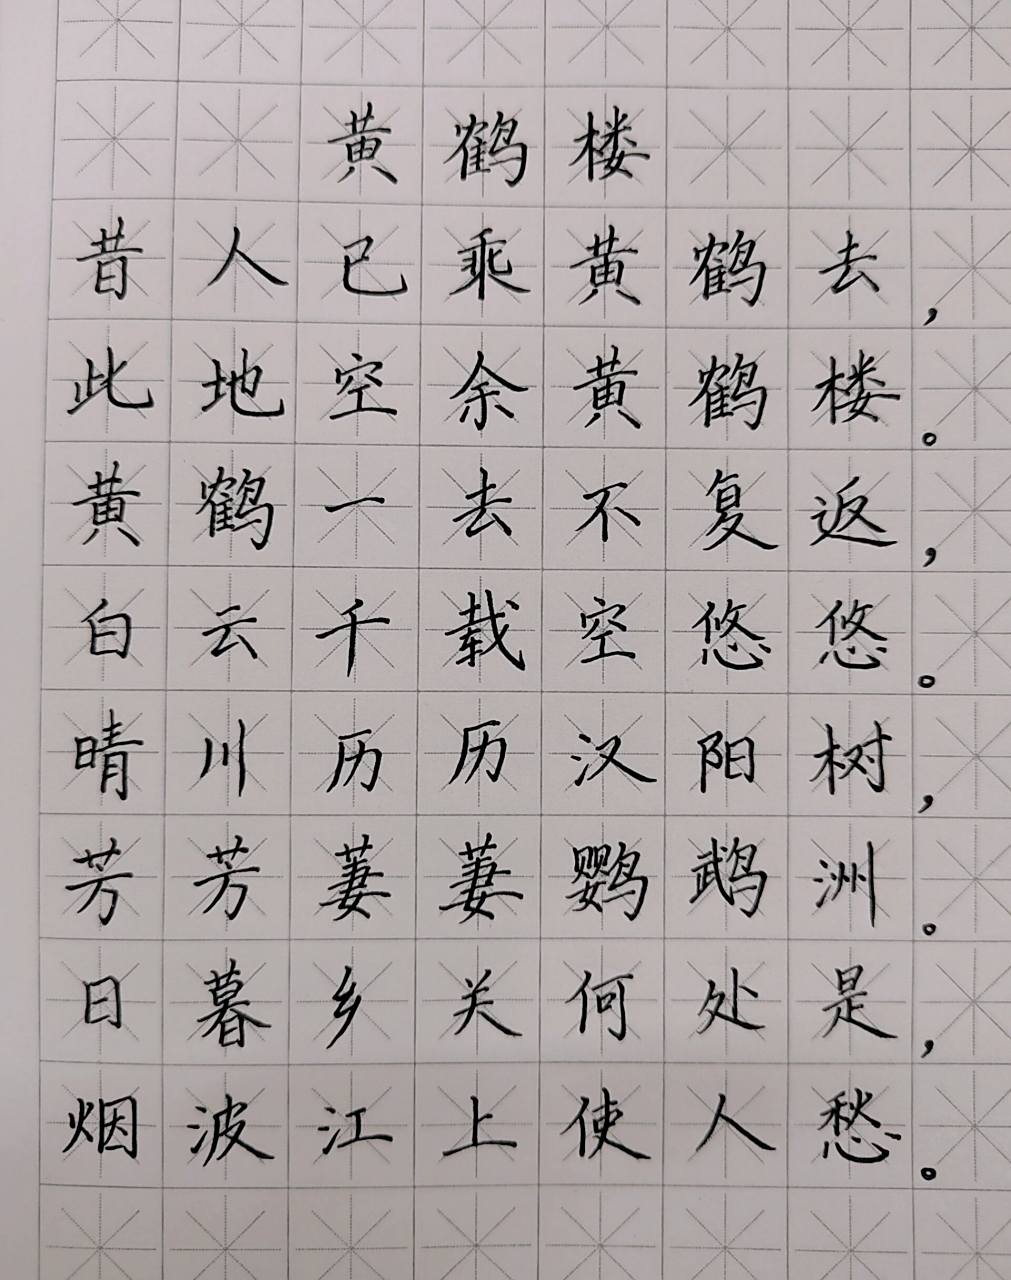 黄鹤楼
昔人已乘黄鹤去，
此地空余黄鹤楼。
黄鹤一去不复返，
白云千载空悠悠。
晴川历历汉阳树，
芳芳萋萋鹦鹉洲。
日暮乡关何处是，
烟波江上使人愁。